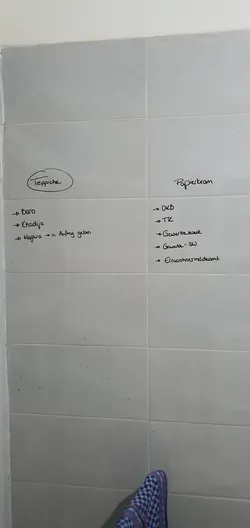 Teppiche
→ Büro
→ Khadija
→ → in Auftrag geben
Papierkram
→ DKB
→ TK
→ Gewerbe
→ Gewerbe - SW
→ Einwohnermeldeamt